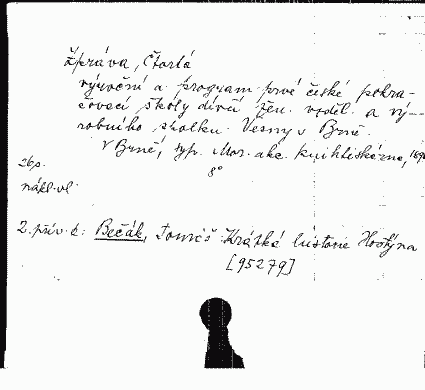 Zpráva, Čtvrtá
výroční a program prvé české pokra-
čovací školy dívčí žen. vzděl. a vý-
robního spolku Vesny v Brně.
V Brně, typ. Mor. akc. knihtiskárna, 1890
8°
26 p.
nákl. vl.
2. přív. k: Bečák, Tomáš: Krátká historie Hostýna
[95279]